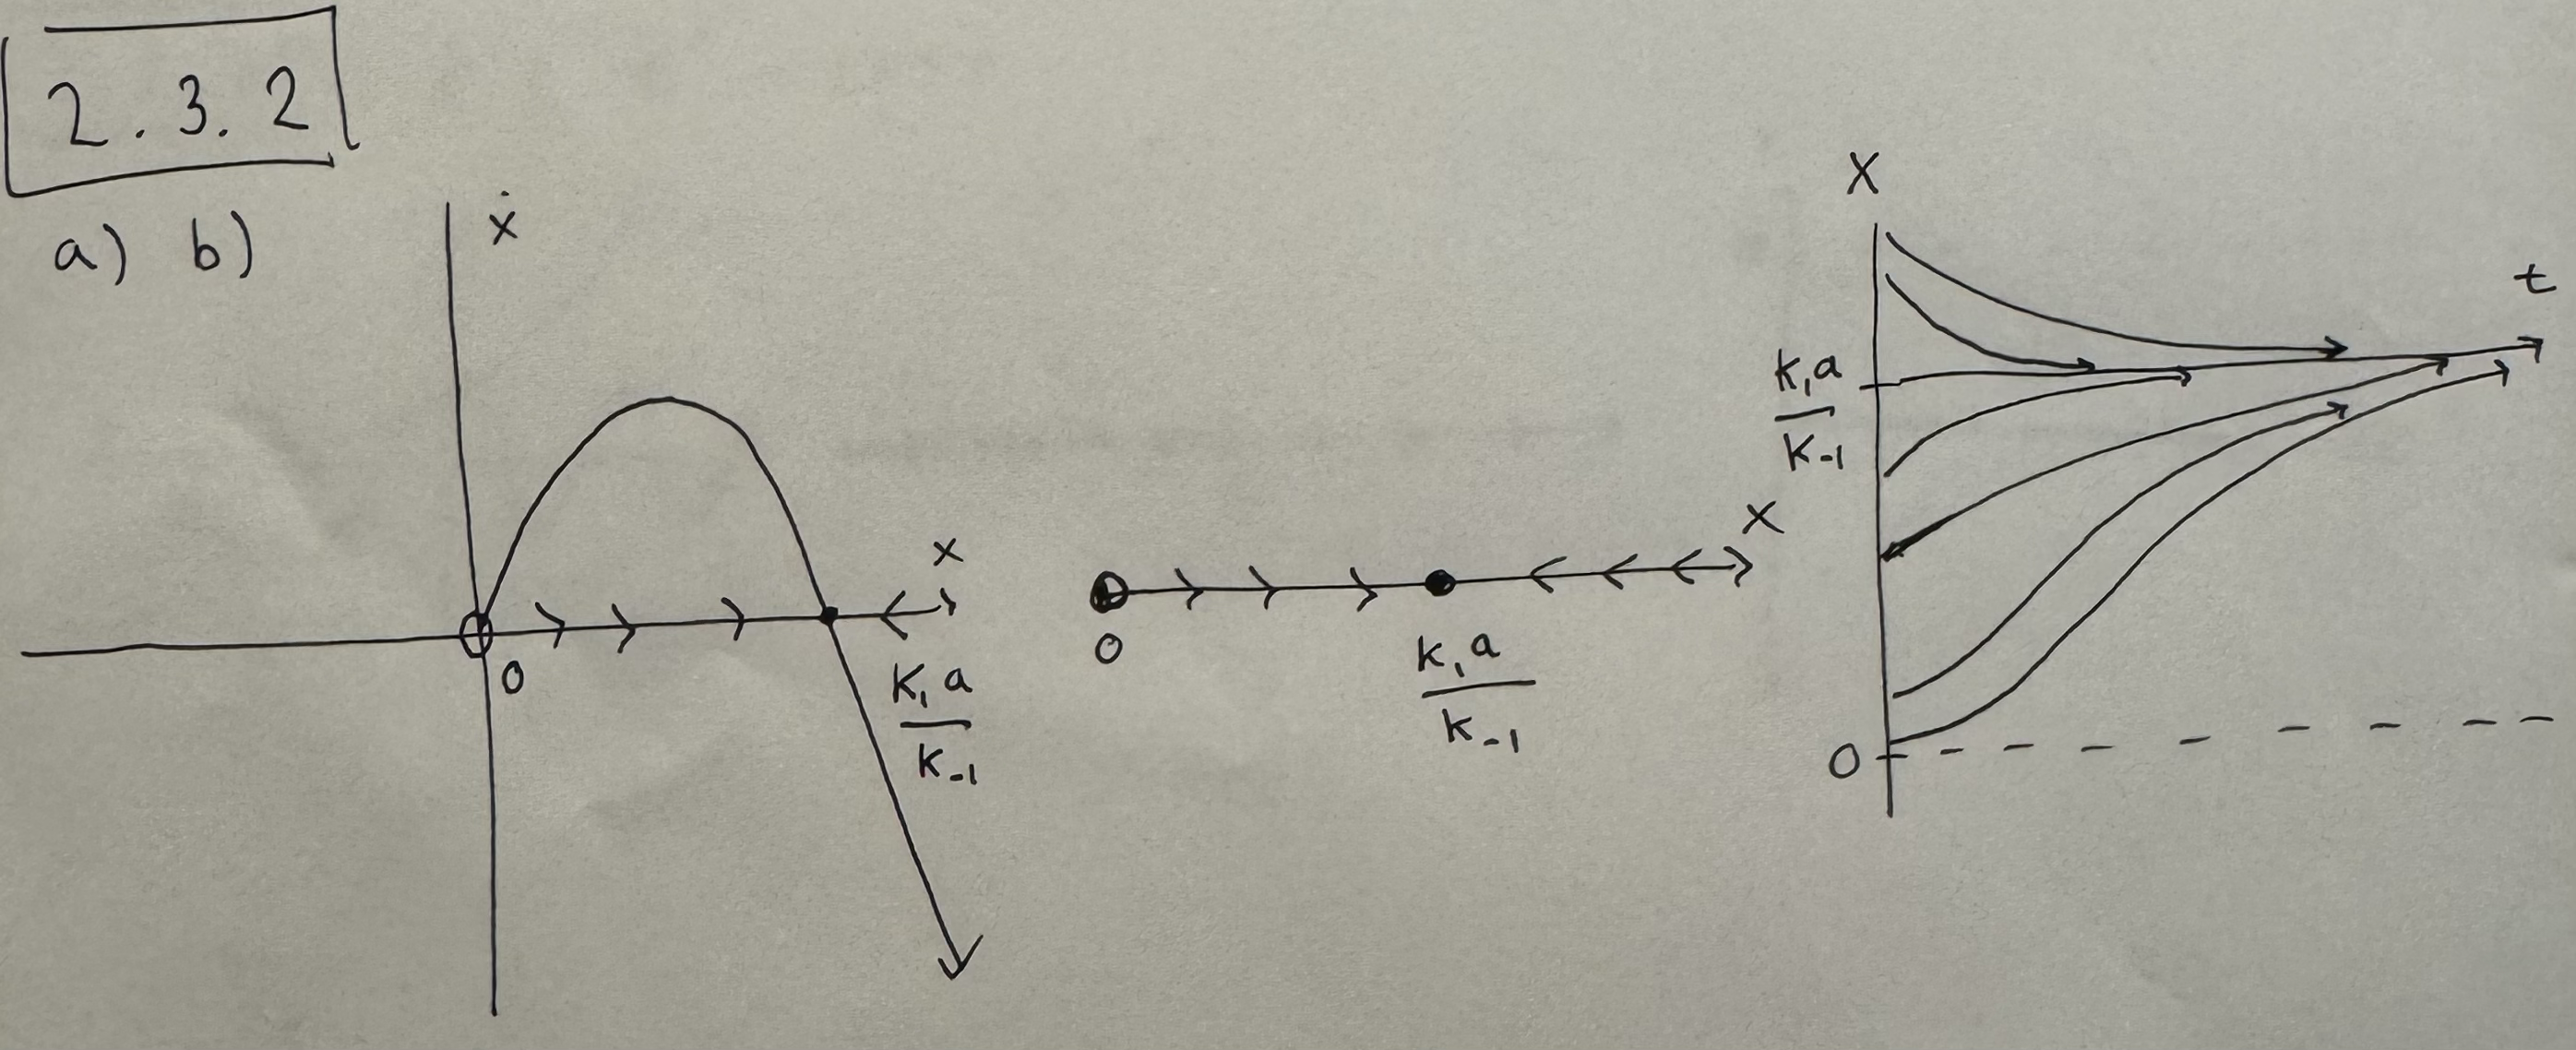 2.3.2
a) b)
ẋ
x
0
k₁a
k₋₁
x
0
k₁a
k₋₁
X
t
k₁a
k₋₁
0